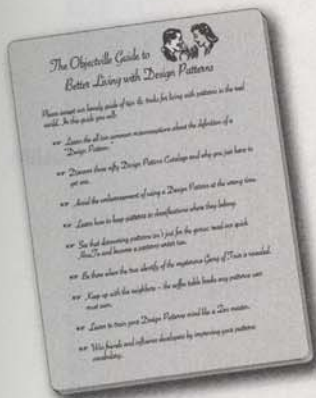 The Objectville Guide to
Better Living with Design Patterns
Please accept our handy guide of tips & tricks for living with patterns in the real
world. In this guide you will:
Learn the all too common misconceptions about the definition of a
"Design Pattern."
Discover those nifty Design Pattern Catalogs and why you just have to
get one.
Avoid the embarrassment of using a Design Pattern at the wrong time.
Learn how to keep patterns in classifications where they belong.
See that discovering patterns isn't just for the gurus; read our quick
HowTo and become a patterns writer too.
Be there when the true identity of the mysterious Gang of Four is revealed.
Keep up with the neighbors – the coffee table books any patterns user
must own.
Learn to train your Design Patterns mind like a Zen master.
Win friends and influence developers by improving your patterns
vocabulary.